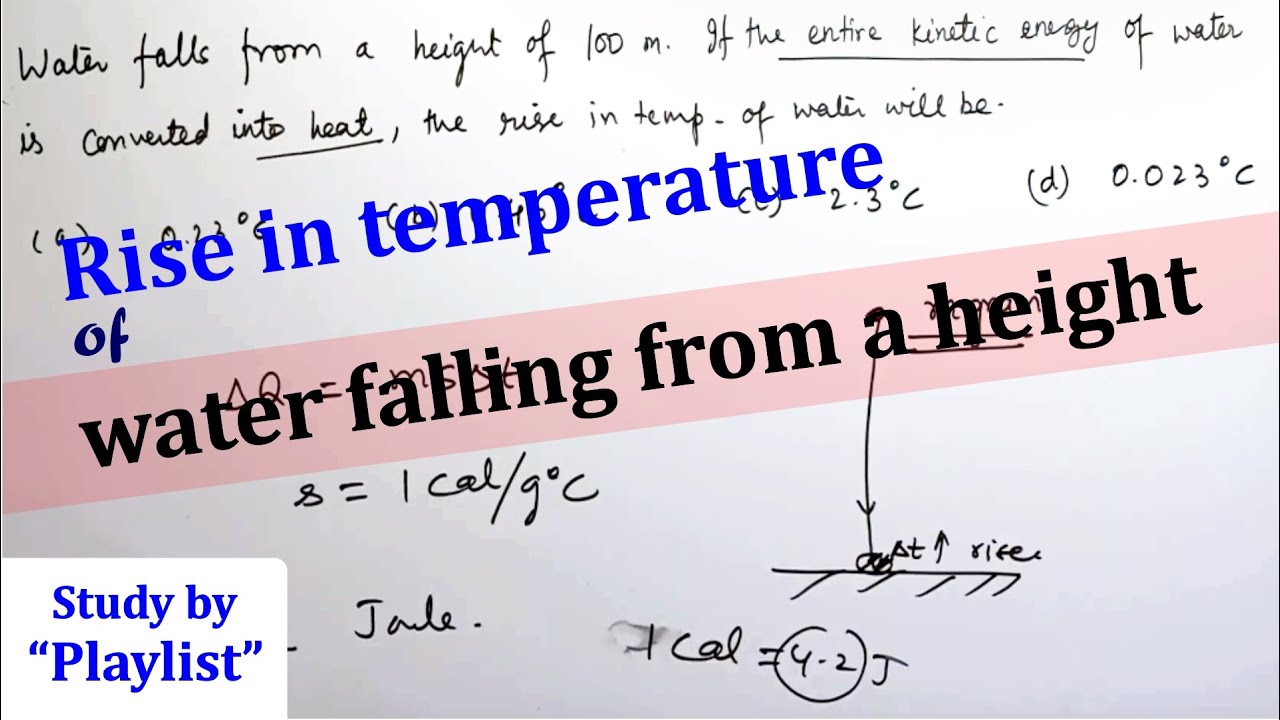 Water falls from a height of 100 m. If the entire kinetic energy of water
is converted into heat, the rise in temp. of water will be.
(a) 0.23°C (b) (c) 2.3°C (d) 0.023°C
Rise in temperature
of
water falling from a height
ΔQ = msΔt
s = 1 Cal/g°C
Δt↑ rise
Joule.
1 Cal = 4.2 J
Study by
“Playlist”